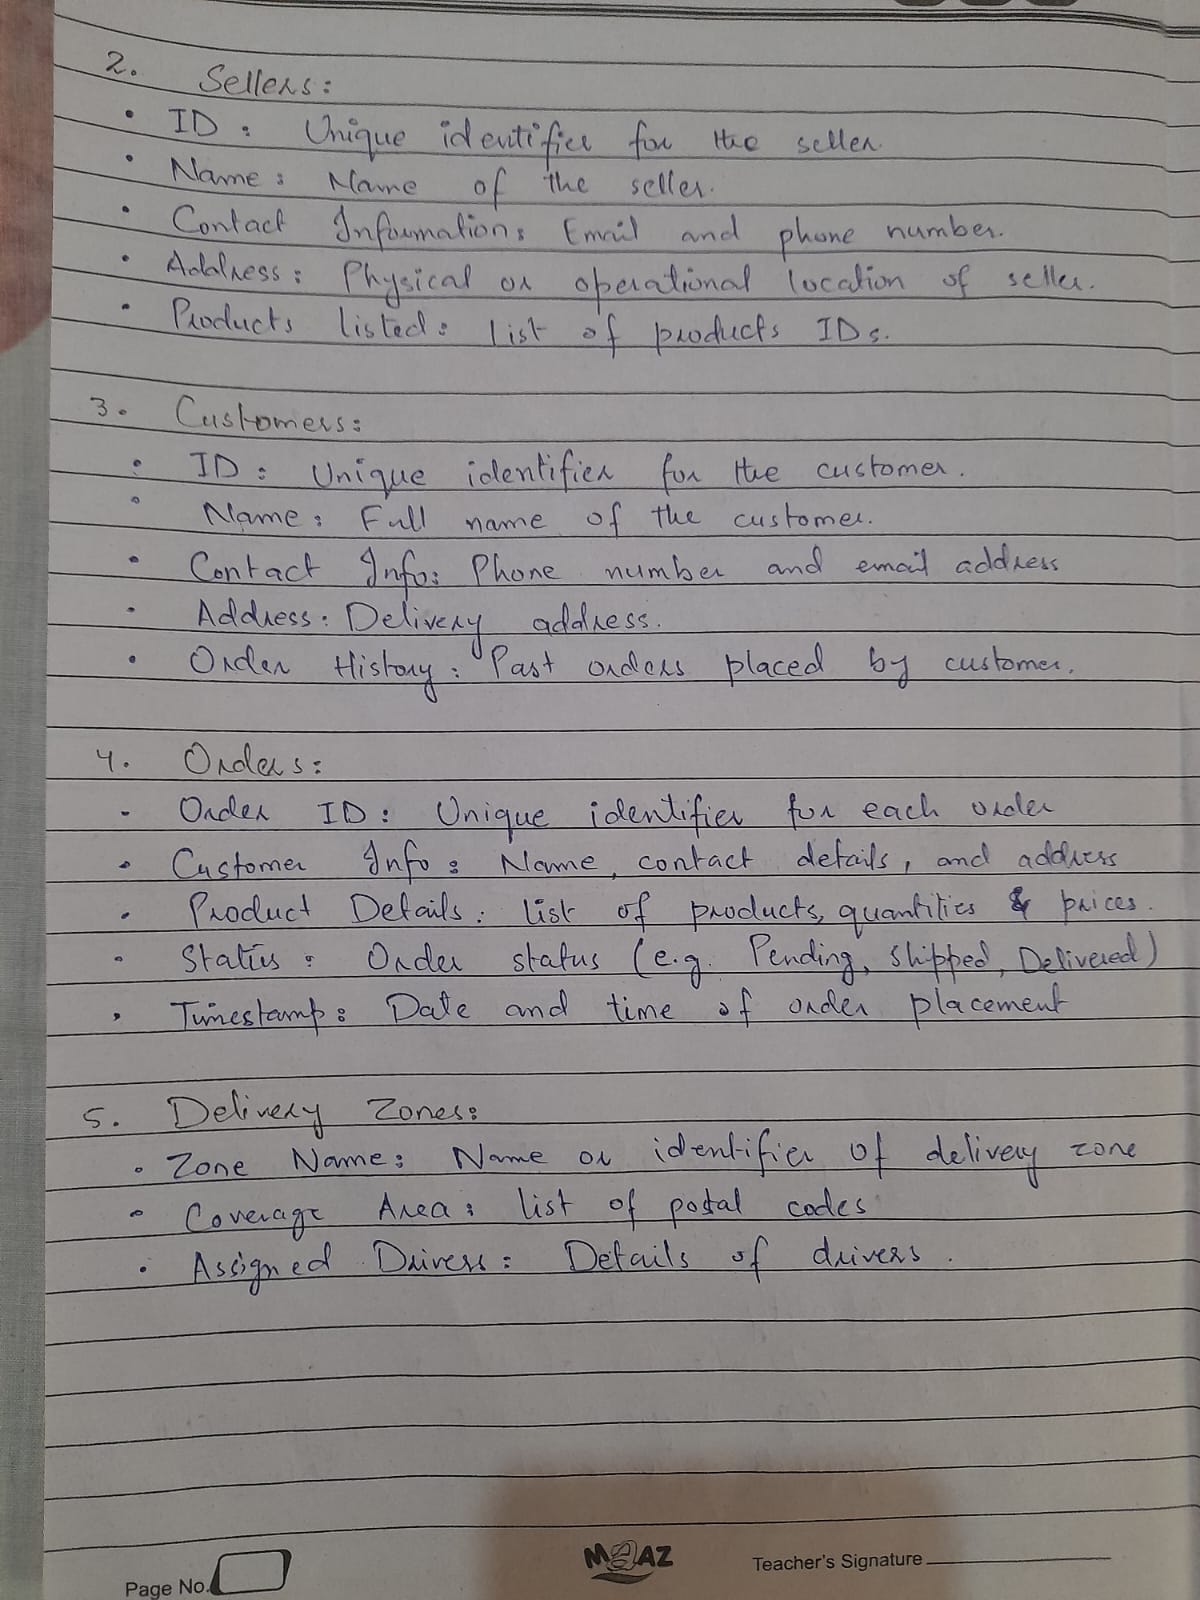 2. Sellers:
• ID : Unique identifier for the seller.
• Name : Name of the seller.
• Contact Information: Email and phone number.
• Address : Physical or operational location of seller.
• Products listed: List of products IDs.
3. Customers:
• ID : Unique identifier for the customer.
• Name : Full name of the customer.
• Contact Info: Phone number and email address
• Address : Delivery address.
• Order History : Past orders placed by customer.
4. Orders:
• Order ID : Unique identifier for each order
• Customer Info : Name, contact details, and address
• Product Details : list of products, quantities & prices.
• Status : Order status (e.g. Pending, Shipped, Delivered)
• Timestamp : Date and time of order placement
5. Delivery Zones:
• Zone Name : Name or identifier of delivery zone
• Coverage Area : list of postal codes
• Assigned Drivers : Details of drivers.
Page No.
MAAZ
Teacher's Signature